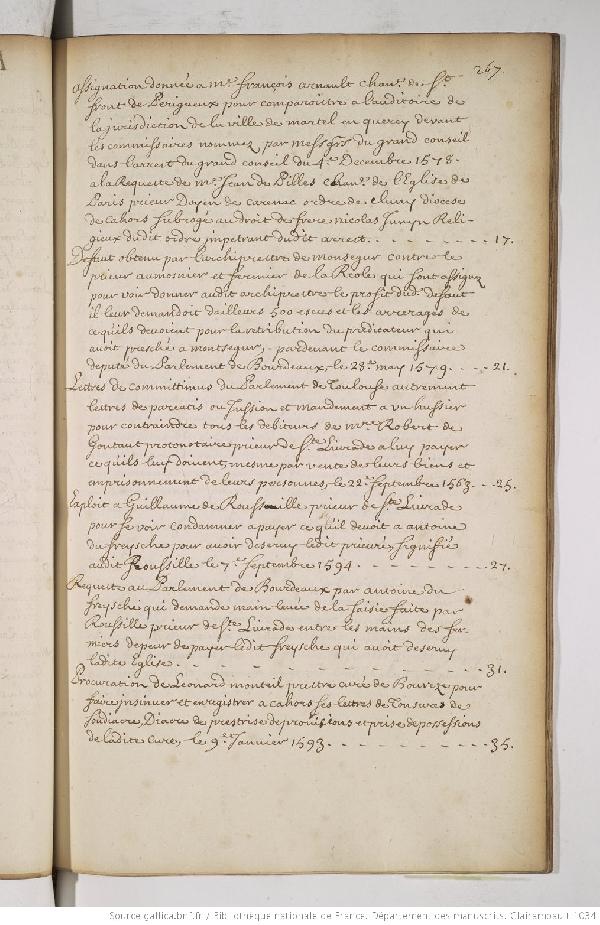 267
assignation donnée a mre françois arnault chane. de st.
front de Perigueux pour comparoitre a lauditoire de
la jurisdiction de la ville de martel en quercy devant
les commissaires nommez par messgrs. du grand conseil
dans larrest du grand conseil du 4e. Decembre 1578.
a la Requeste de mre. Jean de Pilles chane. de l'Eglise de
Paris prieur Doyen de carenac ordre de cluny diocese
de cahors subrogé au droit de frere nicolas Reli-
gieux dudit ordre impetrant dudit arrest. - - - - - - - 17.
Defaut obtenu par larchiprestre de monsegur contre le
prieur aumosnier et fermier de la Reole qui sont assignez
pour voir donner audit archiprestre le profit dudt. defaut
il leur demandoit dailleurs 500 escus et les arrerages de
ce quils devoient pour la retribution du predicateur qui
avoit presché a montsegur, pardevant le commissaire
deputé du Parlement de Bourdeaux, le 28e. may 1579. - - - 21.
Lettres de committimus du Parlement de Toulouse autrement
lettres de pareatis ou Jussion et mandement a vn huissier
pour contraindre tous les debiteurs de mre. Robert de
Gontaut protonotaire prieur de ste. Livrade a luy payer
ce quils luy doivent, mesme par vente de leurs biens et
emprisonnement de leurs personnes, le 22e. septembre 1563. - - 25.
Exploit a Guillaume de Roussille prieur de ste. Livrade
pour se voir condamner a payer ce quil devoit a antoine
du freysche pour avoir deservy ledit prieuré, signifié
audit Roussille le 7e. septembre 1594. - - - - - - - 27.
Requeste au Parlement de Bourdeaux par antoine du
freysche qui demande main levée de la saisie faite par
Roussille prieur de ste. Livrade entre les mains des fer-
miers de peur de payer ledit freysche qui avoit deservy
ladite Eglise. - - - - - - - - - 31.
Procuration de Leonard monteil prestre curé de pour
faire insinuer et enregistrer a cahors ses lettres de Tonsure de
soudiacre, Diacre de prestrise de provisions et prise de possessions
de ladite cure, le 9e. Janvier 1593. - - - - - - - - 35.
Source gallica.bnf.fr / Bibliothèque nationale de France. Département des manuscrits. Clairambault 1034